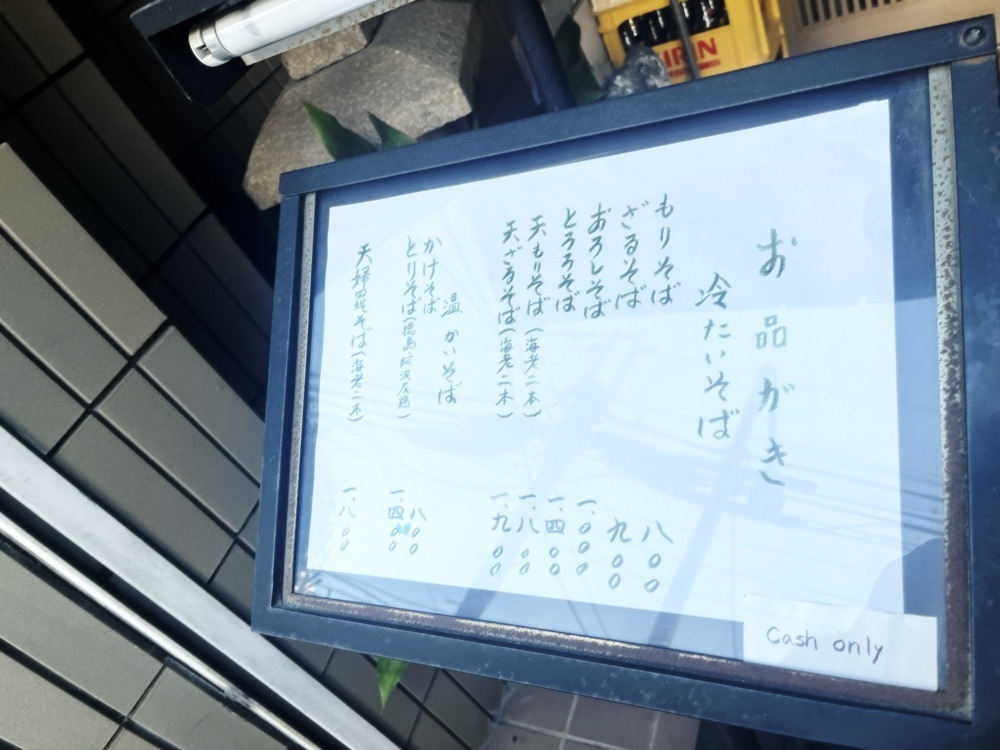 お品がき
冷たいそば
もりそば 八〇〇
ざるそば 九〇〇
おろしそば 一、〇〇〇
とろろそば 一、四〇〇
天もりそば(海老二本) 一、八〇〇
天ざるそば(海老二本) 一、九〇〇
温かいそば
かけそば 八〇〇
とりそば(徳島阿波尾鶏) 一、四〇〇
天婦羅そば(海老二本) 一、八〇〇
Cash only
KIRIN